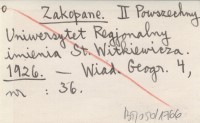 Zakopane. II Powszechny
Uniwersytet Regjonalny
imienia St. Witkiewicza.
1926. — Wiad. Geogr. 4,
nr : 36.